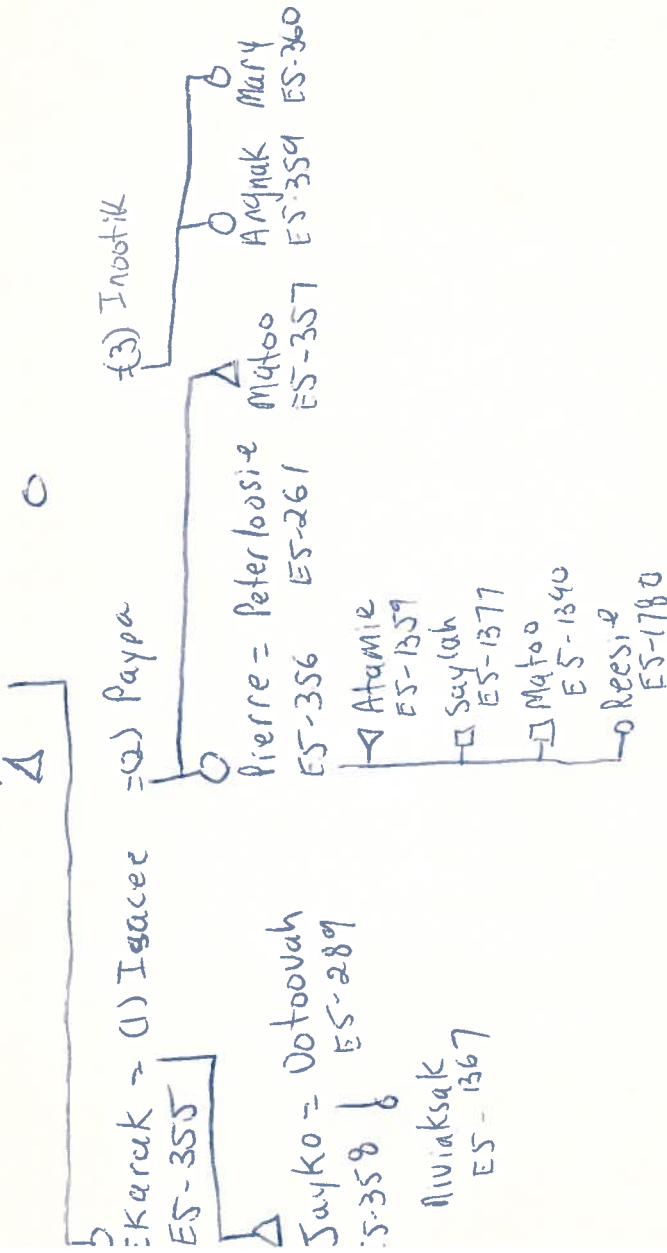 Ekaruk = (1) Isacee =(2) Paypa +(3) Inootik
E5-355
Jayko = Ootoovah
5-358 E5-289
Niviaksak
E5-1367
Pierre = Peterloosie
E5-356 E5-261
Atamie
E5-1359
Saylah
E5-1377
Matoo
E5-1340
Reesie
E5-1780
Matoo
E5-357
Angnak
E5-359
Mary
E5-360